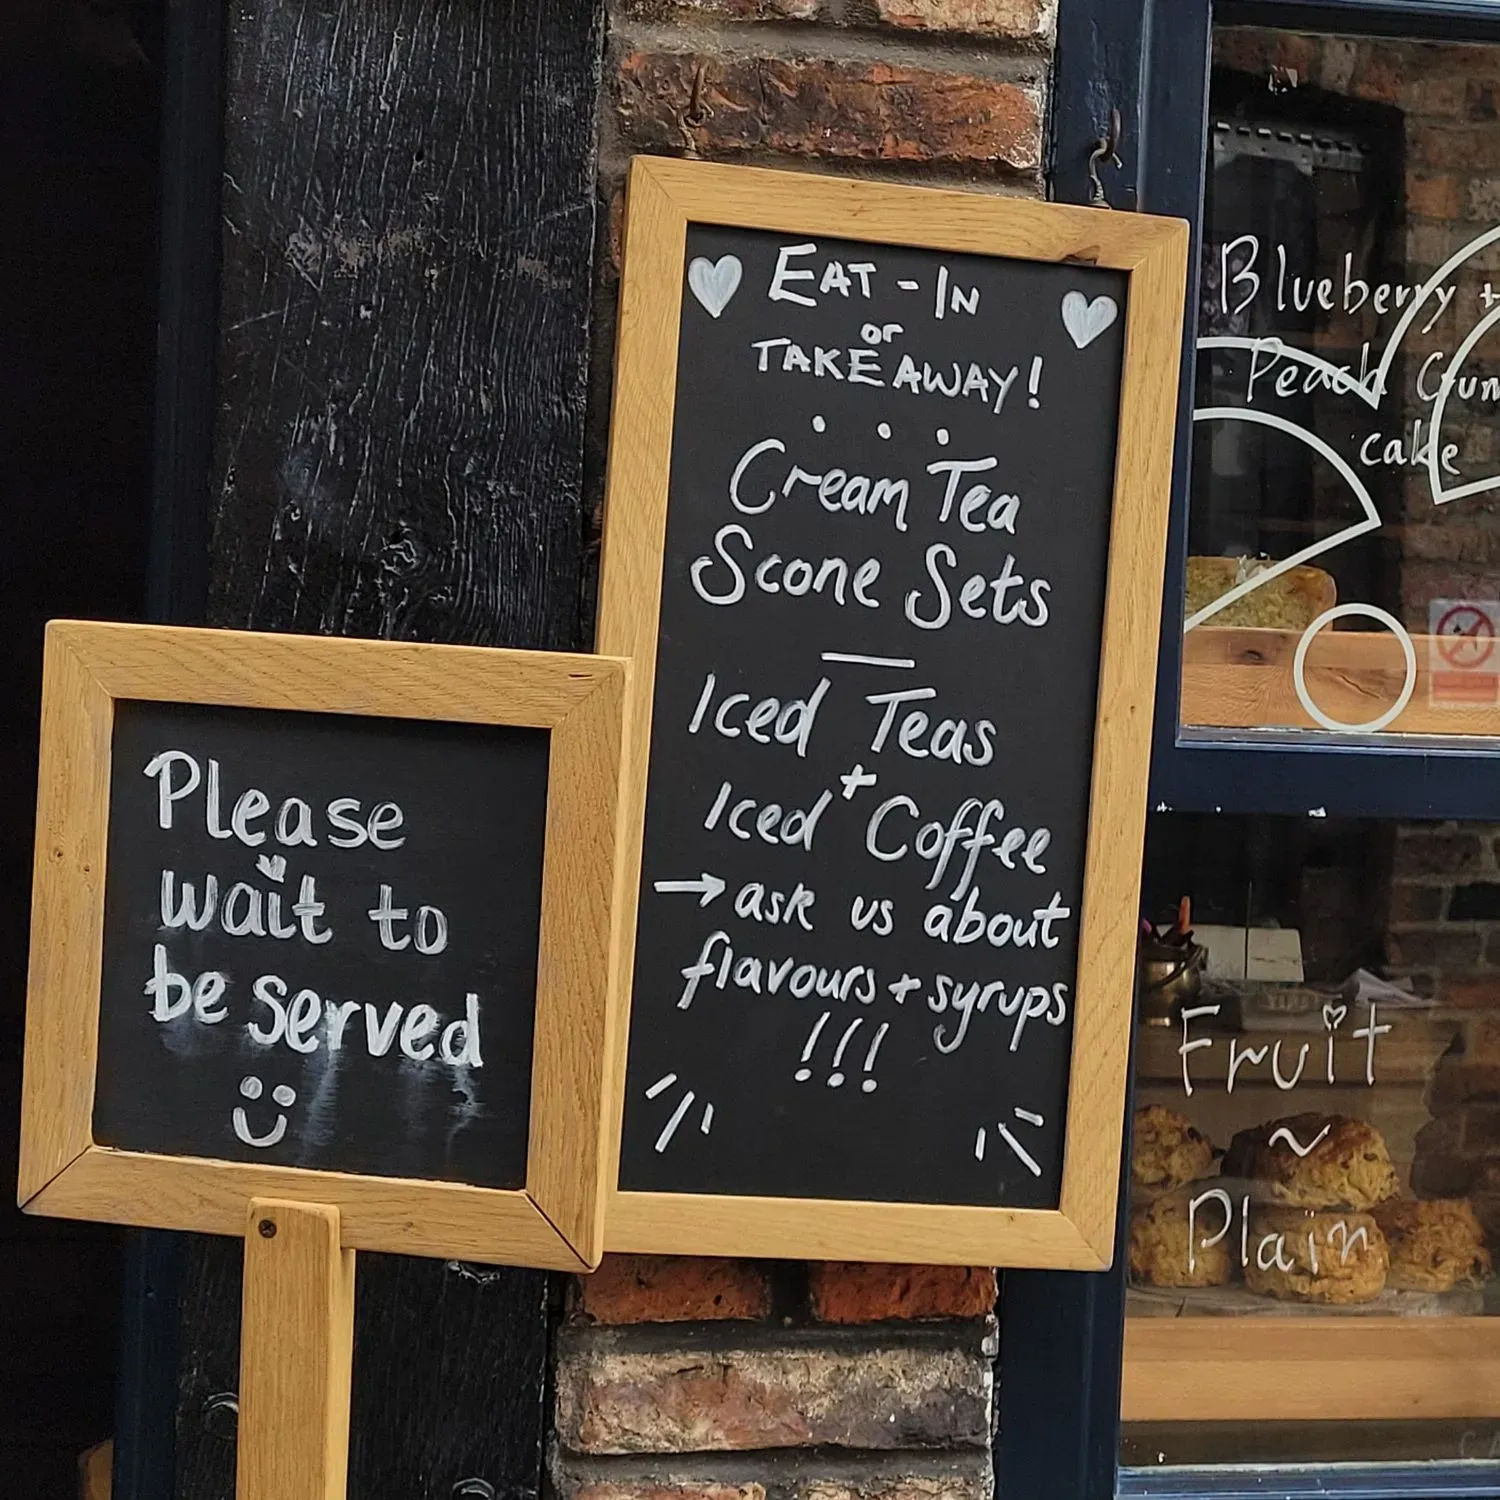 Please
wait to
be served
EAT-IN
or
TAKEAWAY!
Cream Tea
Scone Sets
Iced Teas
+
Iced Coffee
→ ask us about
flavours + syrups
!!!
Blueberry +
Peach
cake
Fruit
~
Plain